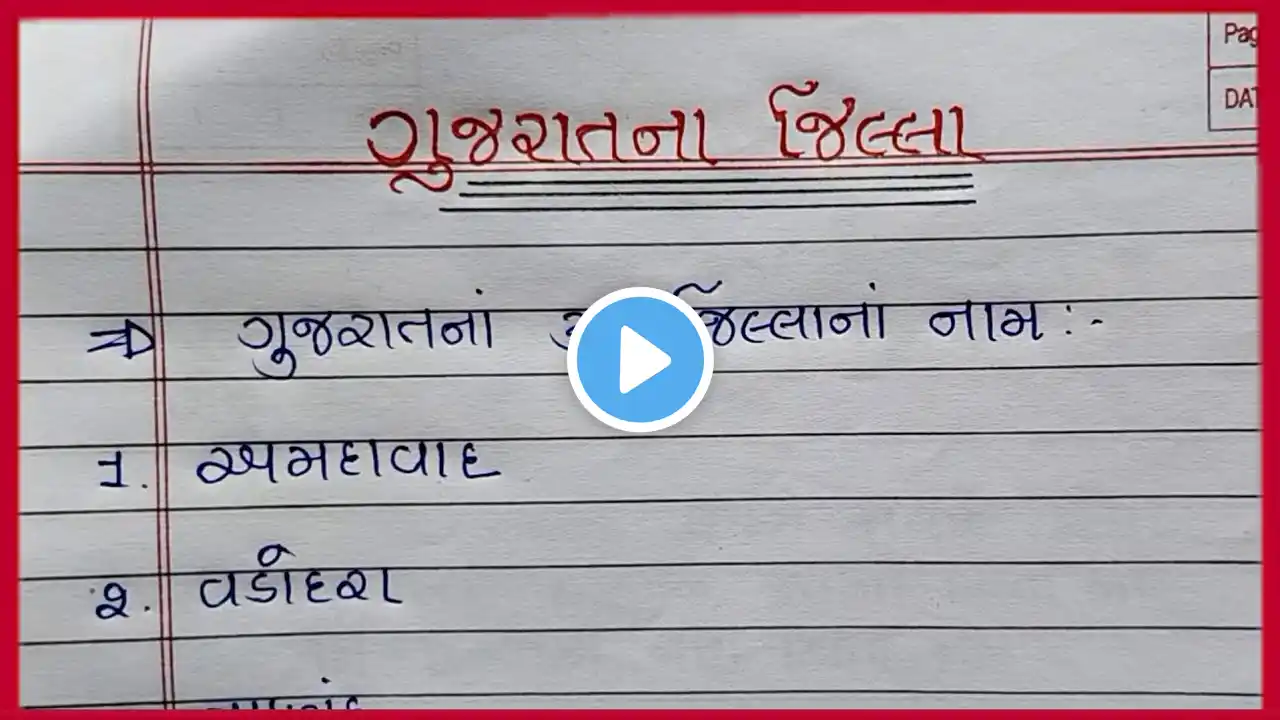 Pag
DAT
ગુજરાતના જિલ્લા
⇒ ગુજરાતનાં જિલ્લાનાં નામ :-
૧. અમદાવાદ
૨. વડોદરા